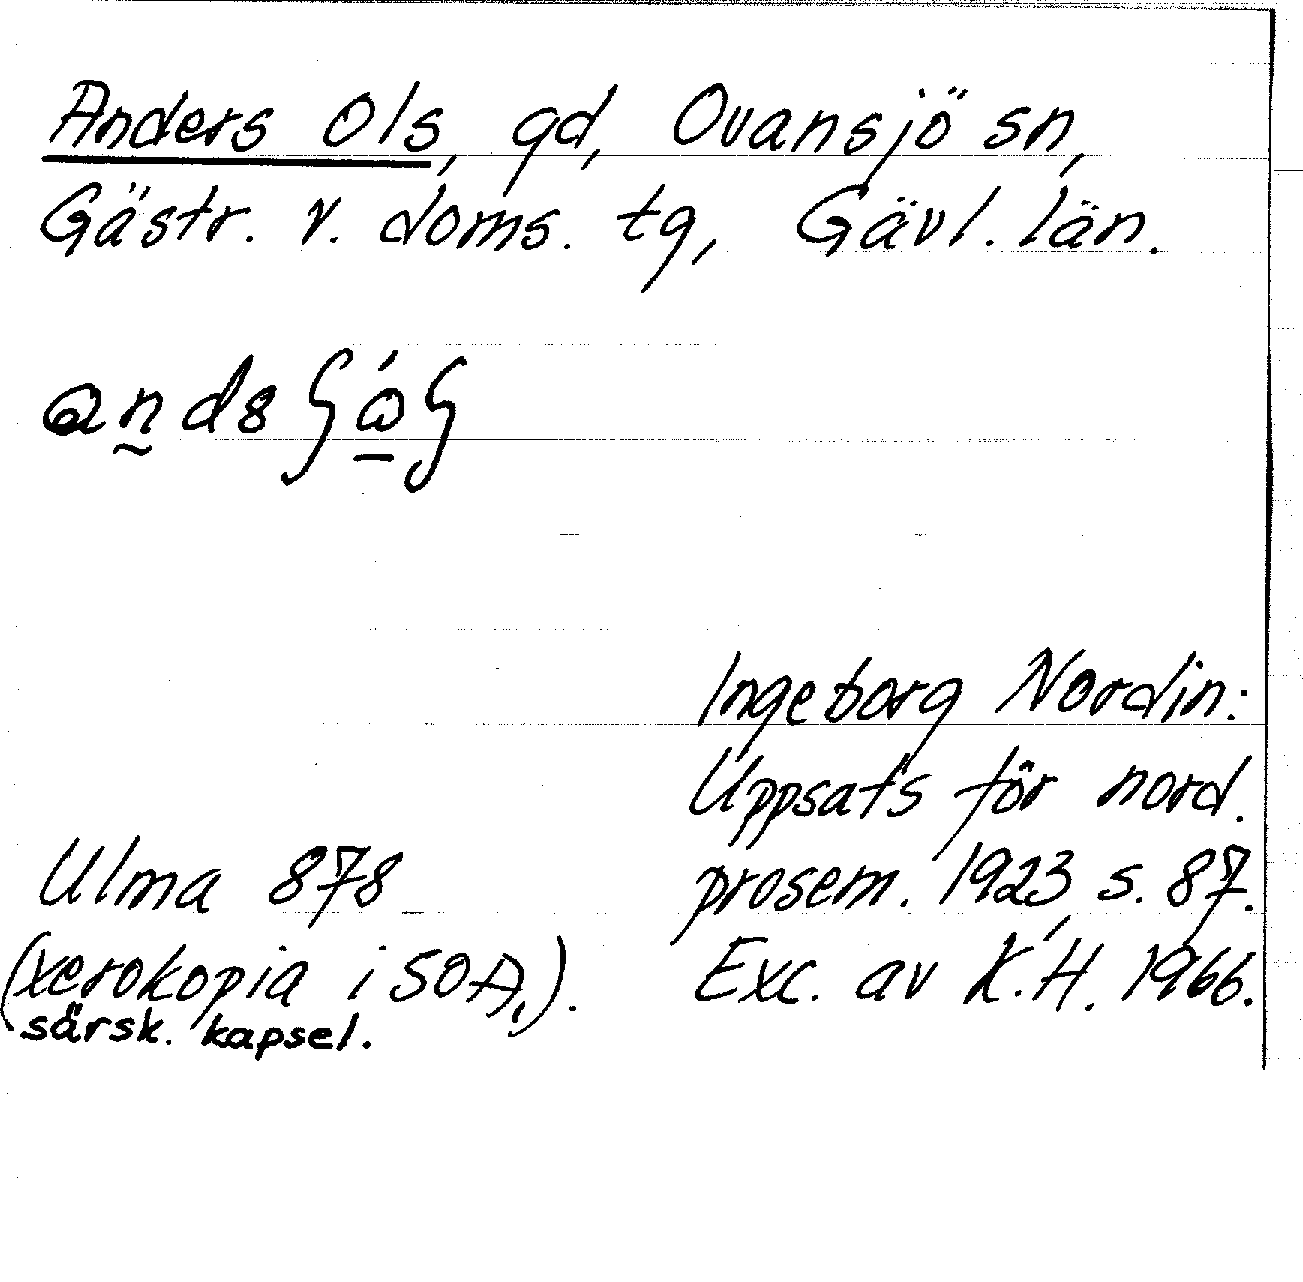 Anders Ols, gd, Ovansjö sn,
Gästr. v. doms. tg, Gävl. län.
Ingeborg Nordin:
Uppsats för nord.
Ulma 878 prosem. 1923, s. 87.
(xerokopia i SOA,). Exc. av K.H. 1966.
särsk. kapsel.